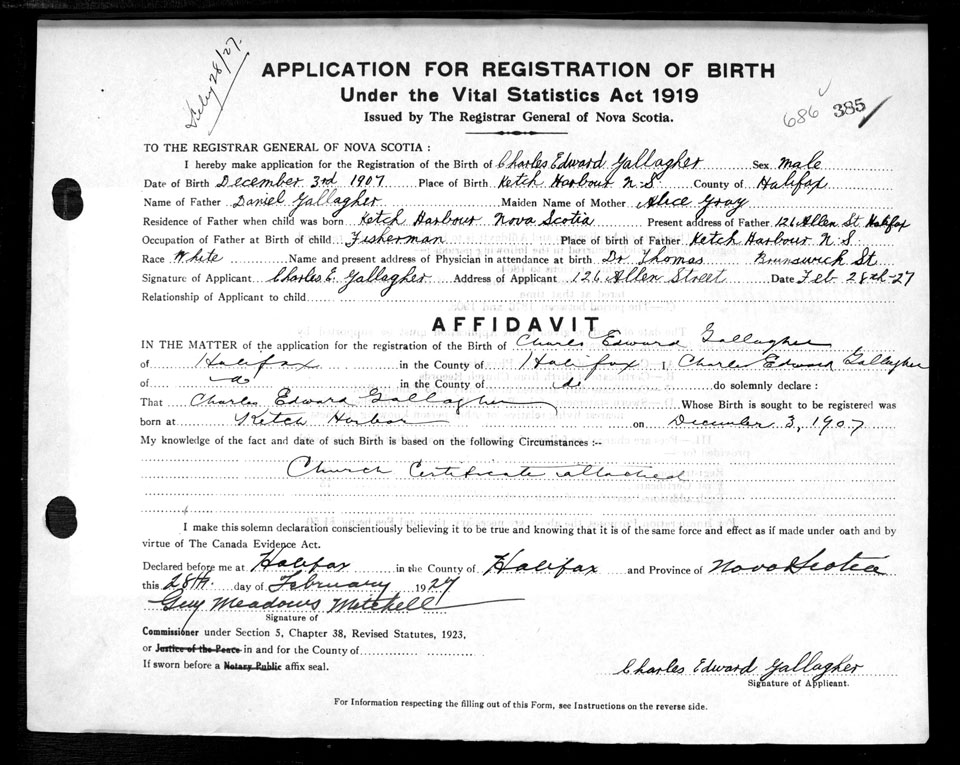 Feby 28/27.
APPLICATION FOR REGISTRATION OF BIRTH
Under the Vital Statistics Act 1919
686 385
Issued by The Registrar General of Nova Scotia.
TO THE REGISTRAR GENERAL OF NOVA SCOTIA :
I hereby make application for the Registration of the Birth of Charles Edward Gallagher Sex male
Date of Birth December 3rd 1907 Place of Birth Ketch Harbour N.S County of Halifax
Name of Father Daniel Gallagher Maiden Name of Mother Alice Gray
Residence of Father when child was born Ketch Harbour Nova Scotia Present address of Father 126 Allen St Halifax
Occupation of Father at Birth of child Fisherman Place of birth of Father Ketch Harbour N.S.
Race White Name and present address of Physician in attendance at birth Dr Thomas Brunswick St
Signature of Applicant Charles E. Gallagher Address of Applicant 126 Allen Street Date Feb 28th-27
Relationship of Applicant to child
AFFIDAVIT
IN THE MATTER of the application for the registration of the Birth of Charles Edward Gallagher
of Halifax in the County of Halifax I, Charles Edward Gallagher
of do in the County of do do solemnly declare :
That Charles Edward Gallagher Whose Birth is sought to be registered was
born at Ketch Harbor on December 3, 1907
My knowledge of the fact and date of such Birth is based on the following Circumstances :--
Church Certificate attached
I make this solemn declaration conscientiously believing it to be true and knowing that it is of the same force and effect as if made under oath and by
virtue of The Canada Evidence Act.
Declared before me at Halifax in the County of Halifax and Province of Nova Scotia
this 28th. day of February 1927
Guy Meadows Mitchell
Signature of
Commissioner under Section 5, Chapter 38, Revised Statutes, 1923,
or Justice of the Peace in and for the County of
If sworn before a Notary Public affix seal.
Charles Edward Gallagher
Signature of Applicant.
For Information respecting the filling out of this Form, see Instructions on the reverse side.